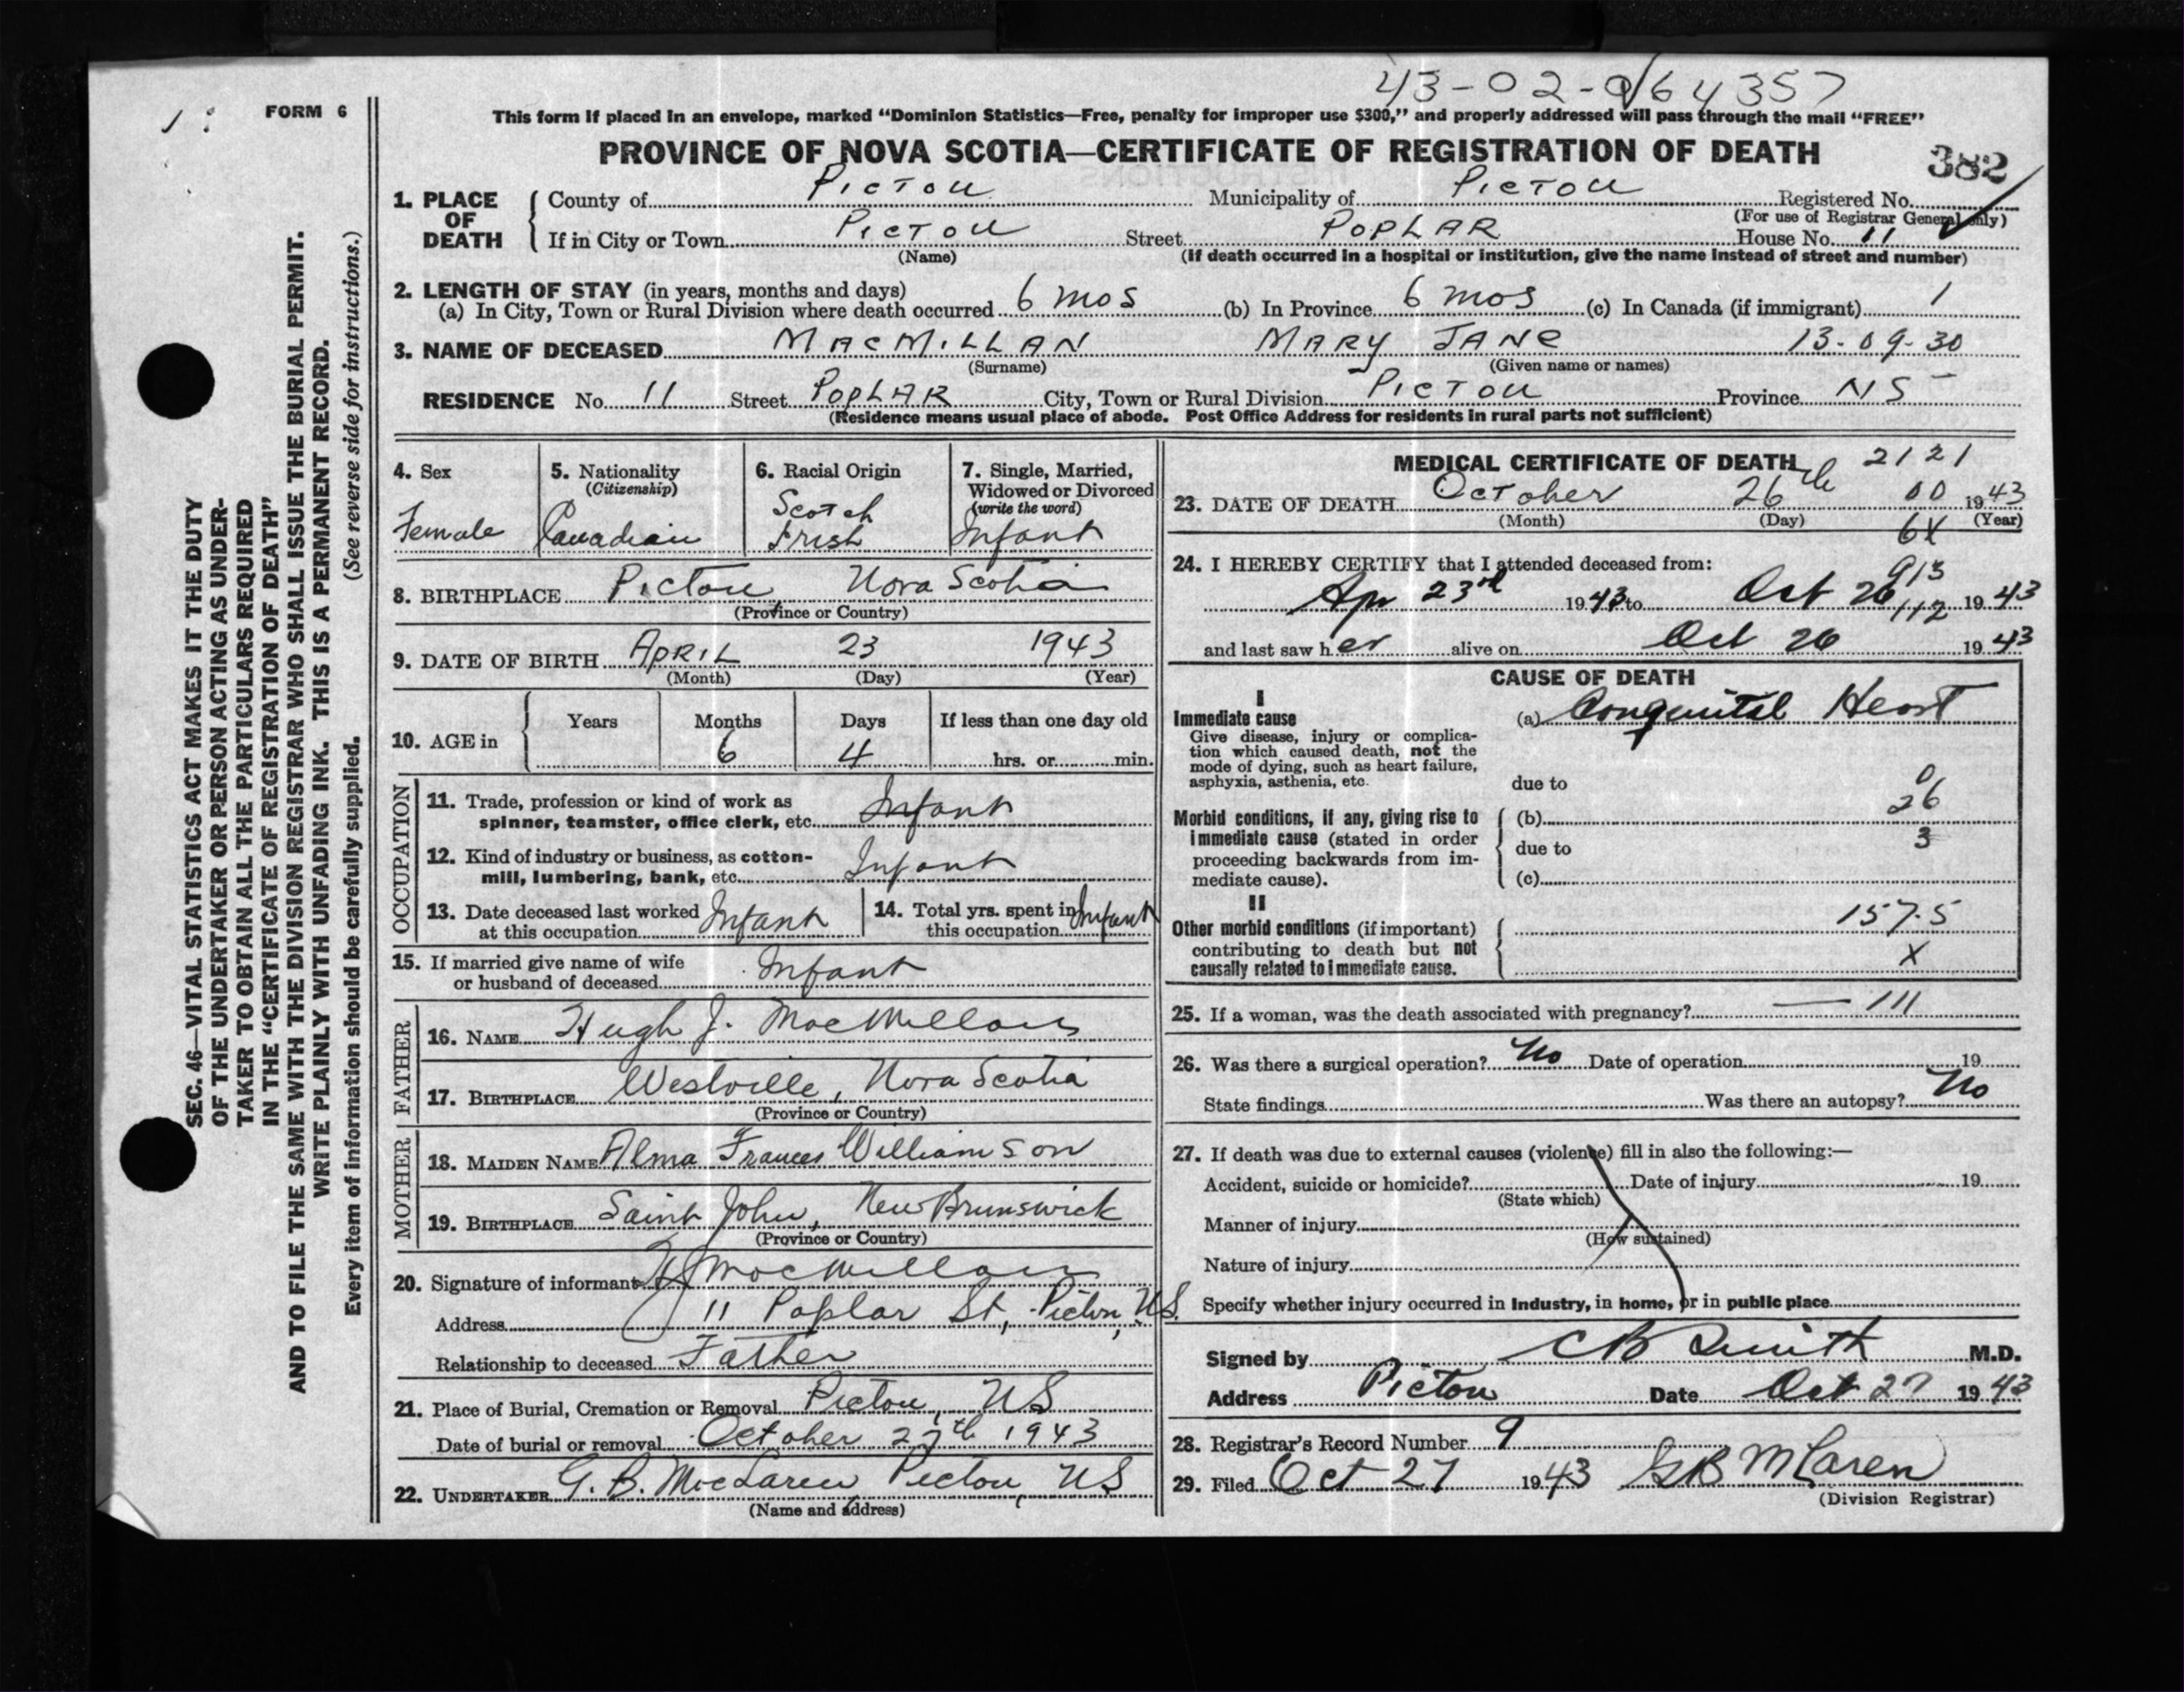 43-02-064357
FORM 6
This form if placed in an envelope, marked “Dominion Statistics—Free, penalty for improper use $300,” and properly addressed will pass through the mail “FREE”
PROVINCE OF NOVA SCOTIA—CERTIFICATE OF REGISTRATION OF DEATH
382
1. PLACE OF DEATH
County of Pictou Municipality of Pictou Registered No.
(For use of Registrar General only)
If in City or Town Pictou Street POPLAR House No. 11
(Name) (If death occurred in a hospital or institution, give the name instead of street and number)
2. LENGTH OF STAY (in years, months and days)
(a) In City, Town or Rural Division where death occurred 6 mos (b) In Province 6 mos (c) In Canada (if immigrant) 1
3. NAME OF DECEASED MACMILLAN MARY JANE 13-09-30
(Surname) (Given name or names)
RESIDENCE No. 11 Street POPLAR City, Town or Rural Division PICTOU Province NS
(Residence means usual place of abode. Post Office Address for residents in rural parts not sufficient)
SEC. 46—VITAL STATISTICS ACT MAKES IT THE DUTY
OF THE UNDERTAKER OR PERSON ACTING AS UNDER-
TAKER TO OBTAIN ALL THE PARTICULARS REQUIRED
IN THE “CERTIFICATE OF REGISTRATION OF DEATH”
AND TO FILE THE SAME WITH THE DIVISION REGISTRAR WHO SHALL ISSUE THE BURIAL PERMIT.
WRITE PLAINLY WITH UNFADING INK. THIS IS A PERMANENT RECORD.
Every item of information should be carefully supplied. (See reverse side for instructions.)
4. Sex
Female
5. Nationality
(Citizenship)
Canadian
6. Racial Origin
Scotch
Irish
7. Single, Married,
Widowed or Divorced
(write the word)
Infant
8. BIRTHPLACE Pictou, Nova Scotia
(Province or Country)
9. DATE OF BIRTH APRIL 23 1943
(Month) (Day) (Year)
10. AGE in
Years Months Days If less than one day old
6 4 hrs. or min.
OCCUPATION
11. Trade, profession or kind of work as
spinner, teamster, office clerk, etc. Infant
12. Kind of industry or business, as cotton-
mill, lumbering, bank, etc. Infant
13. Date deceased last worked
at this occupation Infant
14. Total yrs. spent in
this occupation Infant
15. If married give name of wife
or husband of deceased Infant
FATHER
16. NAME Hugh J. MacMillan
17. BIRTHPLACE Westville, Nova Scotia
(Province or Country)
MOTHER
18. MAIDEN NAME Alma Frances Williamson
19. BIRTHPLACE Saint John, New Brunswick
(Province or Country)
20. Signature of informant HJ MacMillan
Address 11 Poplar St, Pictou, NS.
Relationship to deceased Father
21. Place of Burial, Cremation or Removal Pictou, NS
Date of burial or removal October 27th 1943
22. UNDERTAKER G. B. MacLaren, Pictou, NS
(Name and address)
MEDICAL CERTIFICATE OF DEATH 2121
23. DATE OF DEATH October 26th 00 1943
(Month) (Day) (Year)
6X
24. I HEREBY CERTIFY that I attended deceased from:
913
Apr 23rd 1943 to Oct 26 1943
112
and last saw her alive on Oct 26 1943
CAUSE OF DEATH
I
Immediate cause
Give disease, injury or complica-
tion which caused death, not the
mode of dying, such as heart failure,
asphyxia, asthenia, etc.
(a) Congenital Heart
due to
0
26
Morbid conditions, if any, giving rise to
immediate cause (stated in order
proceeding backwards from im-
mediate cause).
(b)
3
due to
(c)
II
Other morbid conditions (if important)
contributing to death but not
causally related to immediate cause.
157.5
X
25. If a woman, was the death associated with pregnancy? — 111
26. Was there a surgical operation? No Date of operation 19
State findings Was there an autopsy? No
27. If death was due to external causes (violence) fill in also the following:—
Accident, suicide or homicide? Date of injury 19
(State which)
Manner of injury
(How sustained)
Nature of injury
Specify whether injury occurred in industry, in home, or in public place
Signed by CB Smith M.D.
Address Pictou Date Oct 27 1943
28. Registrar's Record Number 9
29. Filed Oct 27 1943 GB McLaren
(Division Registrar)